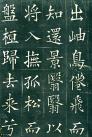 出岫鳥倦飛而
知還景翳翳以
將入撫孤松而
盤桓歸去來兮